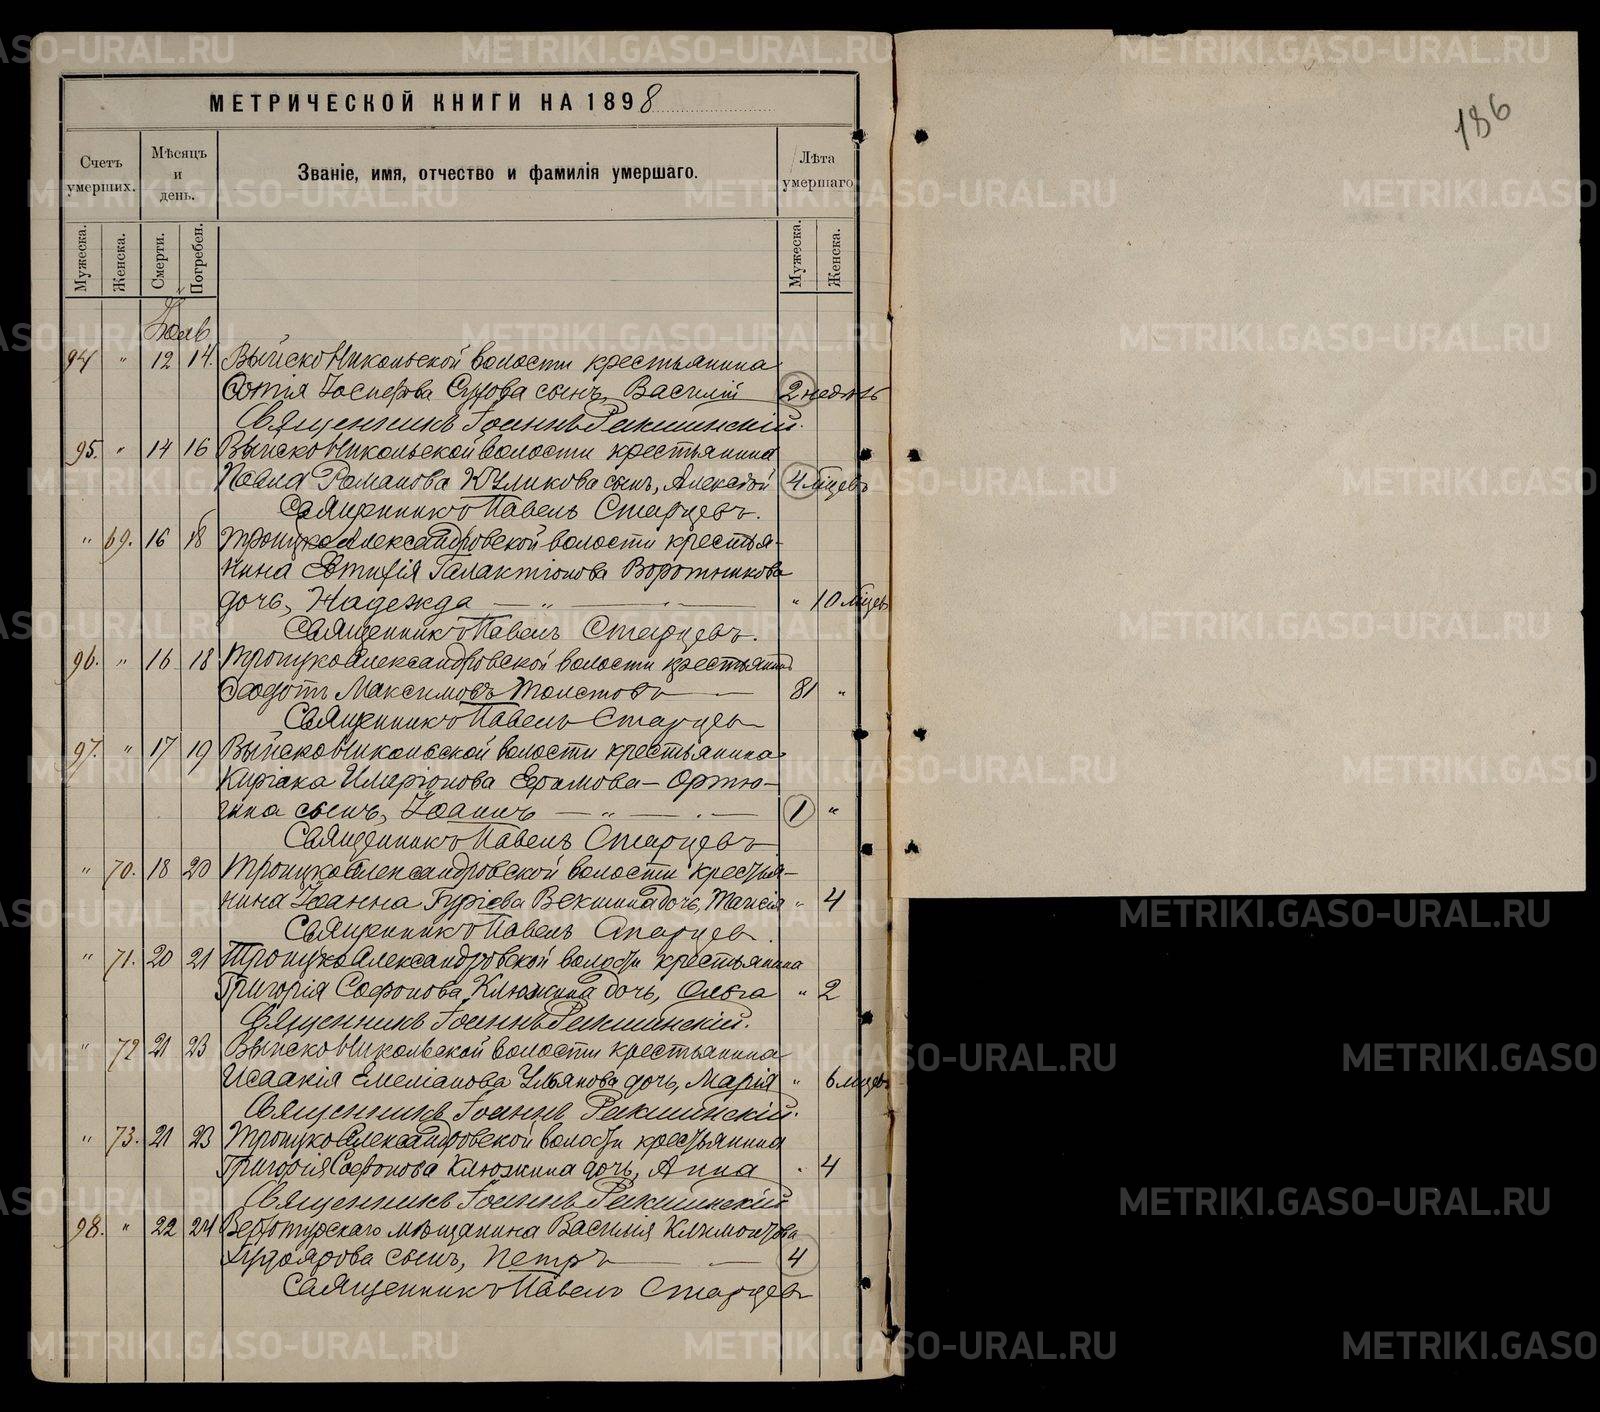 МЕТРИЧЕСКОЙ КНИГИ НА 1898
186
Счетъ умершихъ.
Мѣсяцъ и день.
Званіе, имя, отчество и фамилія умершаго.
Лѣта умершаго
Мужеска.
Женска.
Смерти.
Погребен.
Мужеска.
Женска.
94 " 12 14. Выйско Никольской волости крестьянина
сынъ, Василій 2 недѣль
Священникъ Іоаннъ
95. " 14 16 Выйско Никольской волости крестьянина
Павла Романова Куликова сынъ, Алексѣй 4 мѣсцевъ
Священникъ Павелъ Старцевъ.
" 69. 16 18 Троицко Александровской волости крестья-
нина Евтихія Галактіонова Воротникова
дочь, Надежда — " — " 10 мѣсцев
Священникъ Павелъ Старцевъ.
96. " 16 18 Троицко Александровской волости крестьянинъ
Ѳеодотъ Максимовъ Толстовъ — 81 "
Священникъ Павелъ Старцевъ
97. " 17 19 Выйско Никольской волости крестьянина
Киріака Иларіонова Ефимова — Ортю-
гина сынъ, Іоаннъ — " — 1 "
Священникъ Павелъ Старцевъ
" 70. 18 20 Троицко Александровской волости крестья-
нина Іоанна Гуріева Векшина дочь, Таисія " 4
Священникъ Павелъ Старцев.
" 71. 20 21 Троицко Александровской волости крестьянина
Григорія Софонова Клюжина дочь, Ольга " 2
Священникъ Іоаннъ
" 72 21 23 Выйско Никольской волости крестьянина
Исаакія Емеліанова Ульянова дочь, Марія " 6 мѣсцев
Священникъ Іоаннъ
" 73. 21 23 Троицко Александровской волости крестьянина
Григорія Софонова Клюжина дочь, Анна " 4
Священникъ Іоаннъ
98. " 22 24 Верхотурскаго мѣщанина Василія Климентова
сынъ, Петръ — 4
Священникъ Павелъ Старцевъ
METRIKI.GASO-URAL.RU